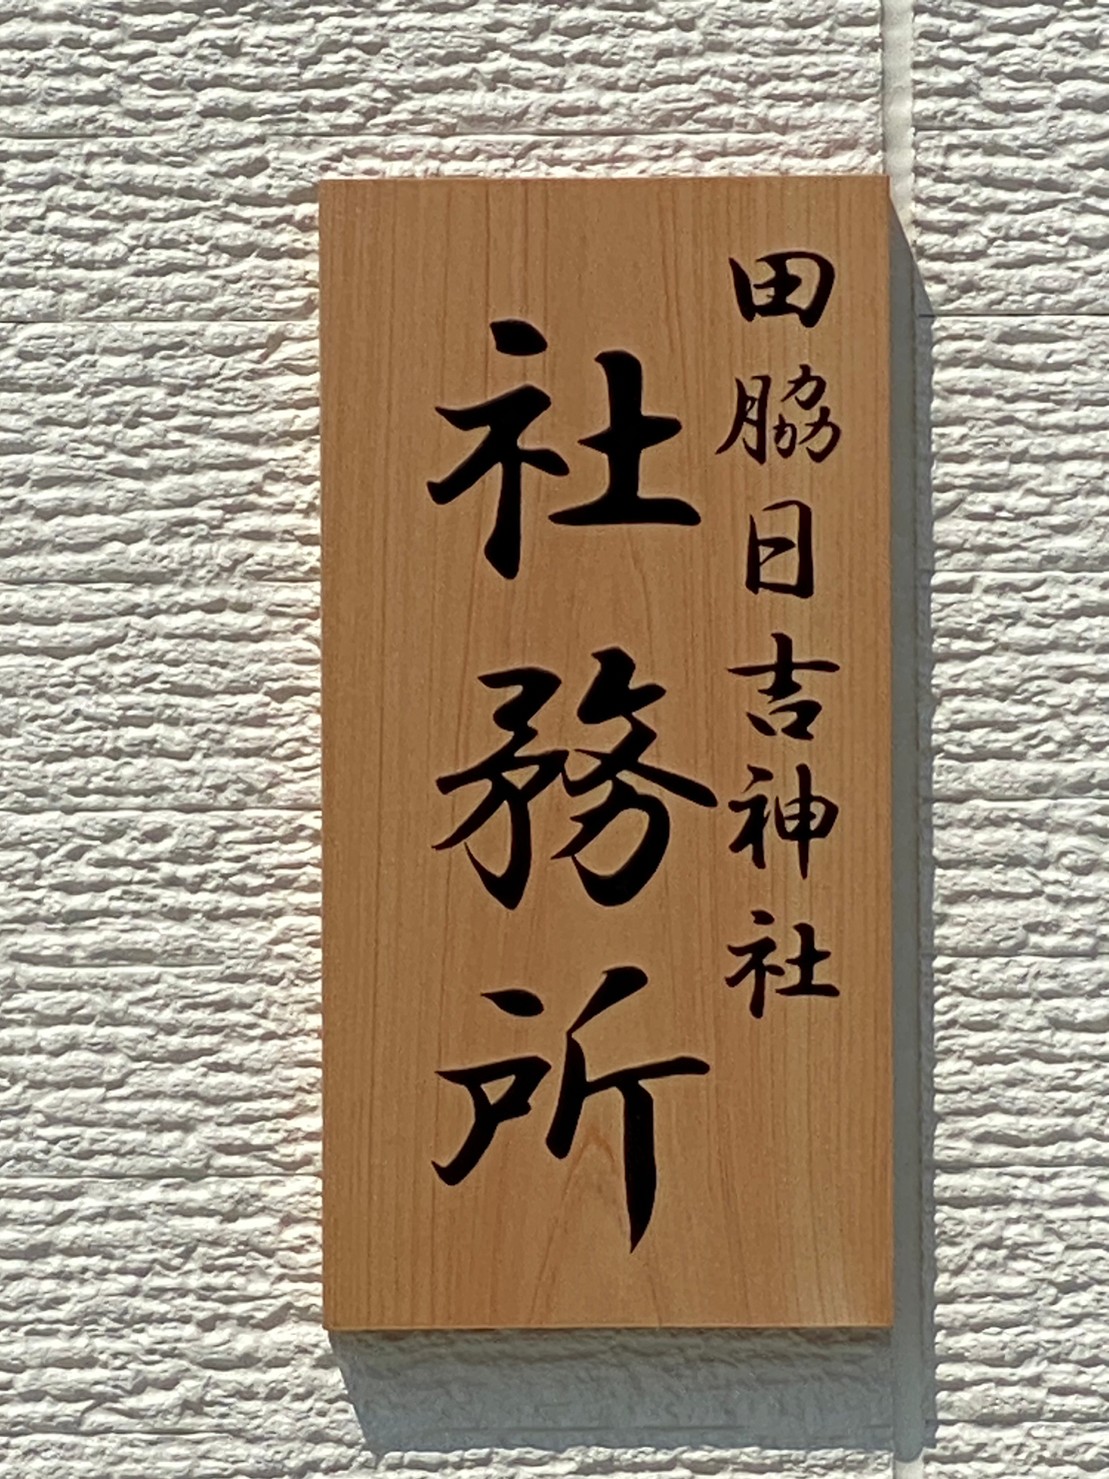 田脇日吉神社
社務所